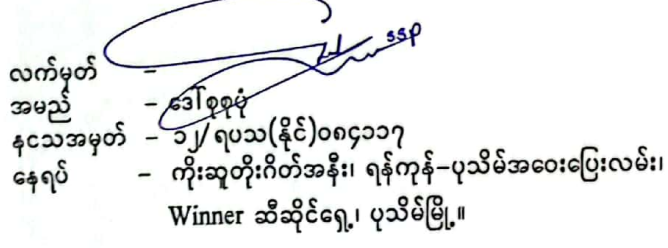 ssp
လက်မှတ် –
အမည် – ဒေါ်စုစုပုံ
နငသအမှတ် – ၁၂/ရပသ(နိုင်)၀၈၄၁၁၇
နေရပ် – ကိုးဆူတိုးဂိတ်အနီး၊ ရန်ကုန်–ပုသိမ်အဝေးပြေးလမ်း၊
Winner ဆီဆိုင်ရှေ့၊ ပုသိမ်မြို့။